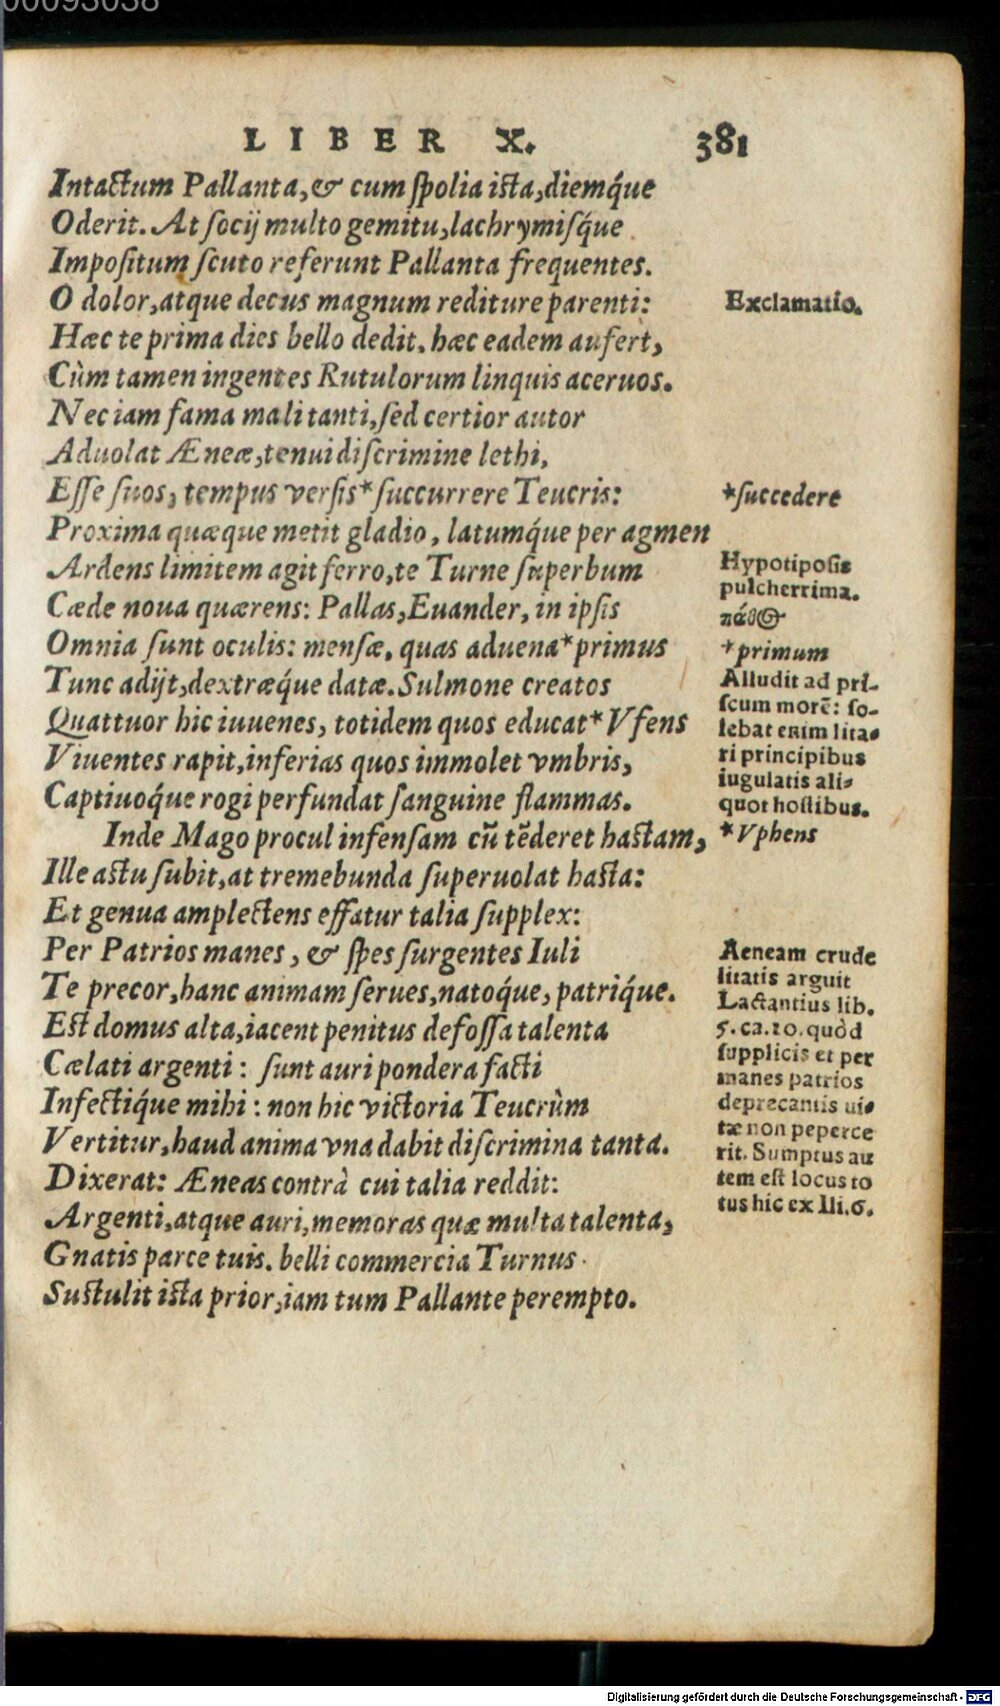 00093038
LIBER X. 381
Intactum Pallanta, & cum spolia ista, diemq́ue
Oderit. At socij multo gemitu, lachrymisq́ue
Impositum scuto referunt Pallanta frequentes.
O dolor, atque decus magnum rediture parenti:
Hæc te prima dies bello dedit, hæc eadem aufert,
Cùm tamen ingentes Rutulorum linquis aceruos.
Nec iam fama mali tanti, sed certior autor
Aduolat Æneæ, tenui discrimine lethi,
Esse suos, tempus versis* succurrere Teucris:
Proxima quæque metit gladio, latumq́ue per agmen
Ardens limitem agit ferro, te Turne superbum
Cæde noua quærens: Pallas, Euander, in ipsis
Omnia sunt oculis: mensæ, quas aduena* primus
Tunc adijt, dextræq́ue datæ. Sulmone creatos
Quattuor hic iuuenes, totidem quos educat* Vfens
Viuentes rapit, inferias quos immolet vmbris,
Captiuoq́ue rogi perfundat sanguine flammas.
Inde Mago procul infensam cū tēderet hastam,
Ille astu subit, at tremebunda superuolat hasta:
Et genua amplectens effatur talia supplex:
Per Patrios manes, & spes surgentes Iuli
Te precor, hanc animam serues, natoq́ue, patriq́ue.
Est domus alta, iacent penitus defossa talenta
Cælati argenti: sunt auri pondera facti
Infectiq́ue mihi: non hic victoria Teucrûm
Vertitur, haud anima vna dabit discrimina tanta.
Dixerat: Æneas contrà cui talia reddit:
Argenti, atque auri, memoras quæ multa talenta,
Gnatis parce tuis. belli commercia Turnus
Sustulit ista prior, iam tum Pallante perempto.
Exclamatio.
*succedere
Hypotiposis
pulcherrima.
πάθος
*primum
Alludit ad pri-
scum morē: so-
lebat enim lita-
ri principibus
iugulatis ali-
quot hostibus.
*Vphens
Aeneam crude
litatis arguit
Lactantius lib.
5. ca. 10. quòd
supplicis et per
manes patrios
deprecantis ui-
tæ non peperce
rit. Sumptus au
tem est locus to
tus hic ex Ili. 6.
Digitalisierung gefördert durch die Deutsche Forschungsgemeinschaft - DFG